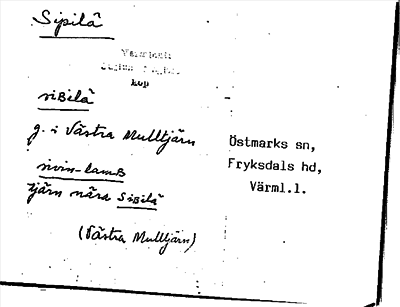 Sipilä
Värmland:
kop
siBelä
g. i Västra Mulltjärn
sivin-lamB
tjärn nära SiBilä
(Västra Mulltjärn)
Östmarks sn,
Fryksdals hd,
Värml.l.